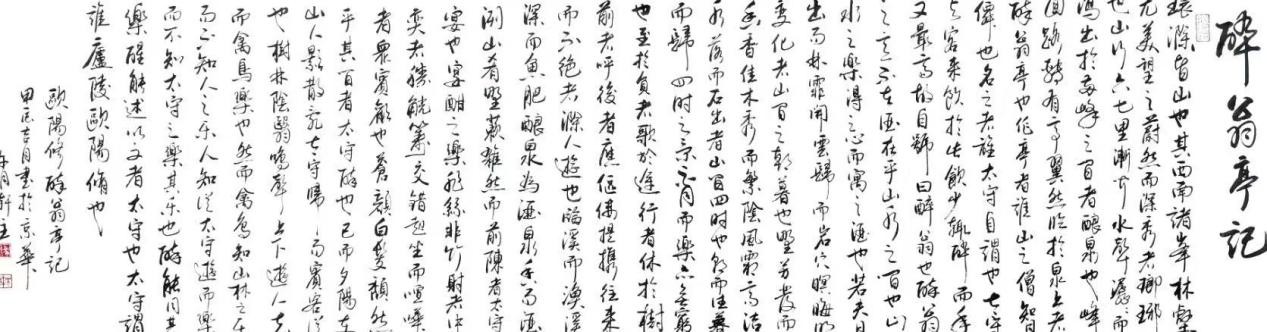 醉翁亭記
環滁皆山也其西南諸峯林壑
尤美望之蔚然而深秀者瑯琊
也山行六七里漸聞水聲潺潺而
瀉出於兩峰之間者釀泉也峰
回路轉有亭翼然臨於泉上者
醉翁亭也作亭者誰山之僧智
僊也名之者誰太守自謂也太守
與客來飲於此飲少輒醉而年
又最高故自號曰醉翁也醉翁
之意不在酒在乎山水之間也山
水之樂得之心而寓之酒也若夫日
出而林霏開雲歸而岩穴暝晦明
變化者山間之朝暮也野芳發而
幽香佳木秀而繁陰風霜高潔
水落而石出者山間四時也朝而往暮
而歸四時之景不同而樂亦無窮
也至於負者歌於途行者休於樹
前者呼後者應傴僂提攜往來
而不絕者滁人遊也臨溪而漁溪
深而魚肥釀泉為酒泉香而酒
洌山肴野蔌雜然而前陳者太守
宴也宴酣之樂非絲非竹射者中
奕者勝觥籌交錯起坐而喧嘩
者衆賓歡也蒼顏白髮頹然
乎其間者太守醉也已而夕陽在
山人影散亂太守歸而賓客從
也樹林陰翳鳴聲上下遊人去
而禽鳥樂也然而禽鳥知山林之樂
而不知人之樂人知從太守遊而樂
而不知太守之樂其樂也醉能同其
樂醒能述以文者太守也太守謂
誰廬陵歐陽脩也
歐陽修醉翁亭記
月書於京華
軒主